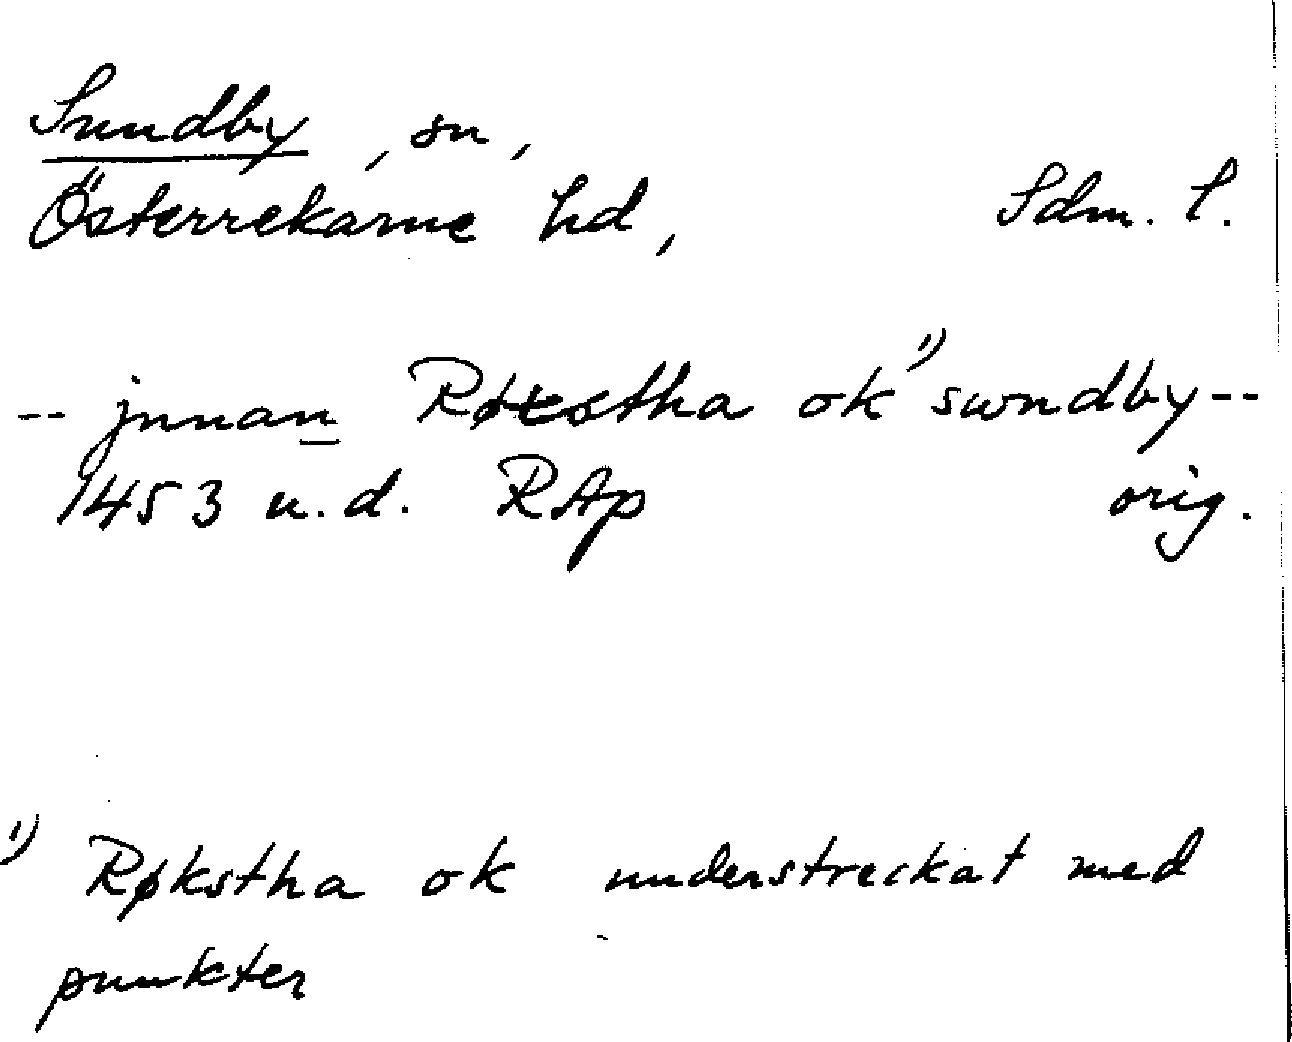 Sundby, sn,
Österrekarne hd, Sdm. l.
-- jnnan Røkstha ok ¹⁾ swndby --
1453 u.d. RAp orig.
¹⁾ Røkstha ok understreckat med
punkter